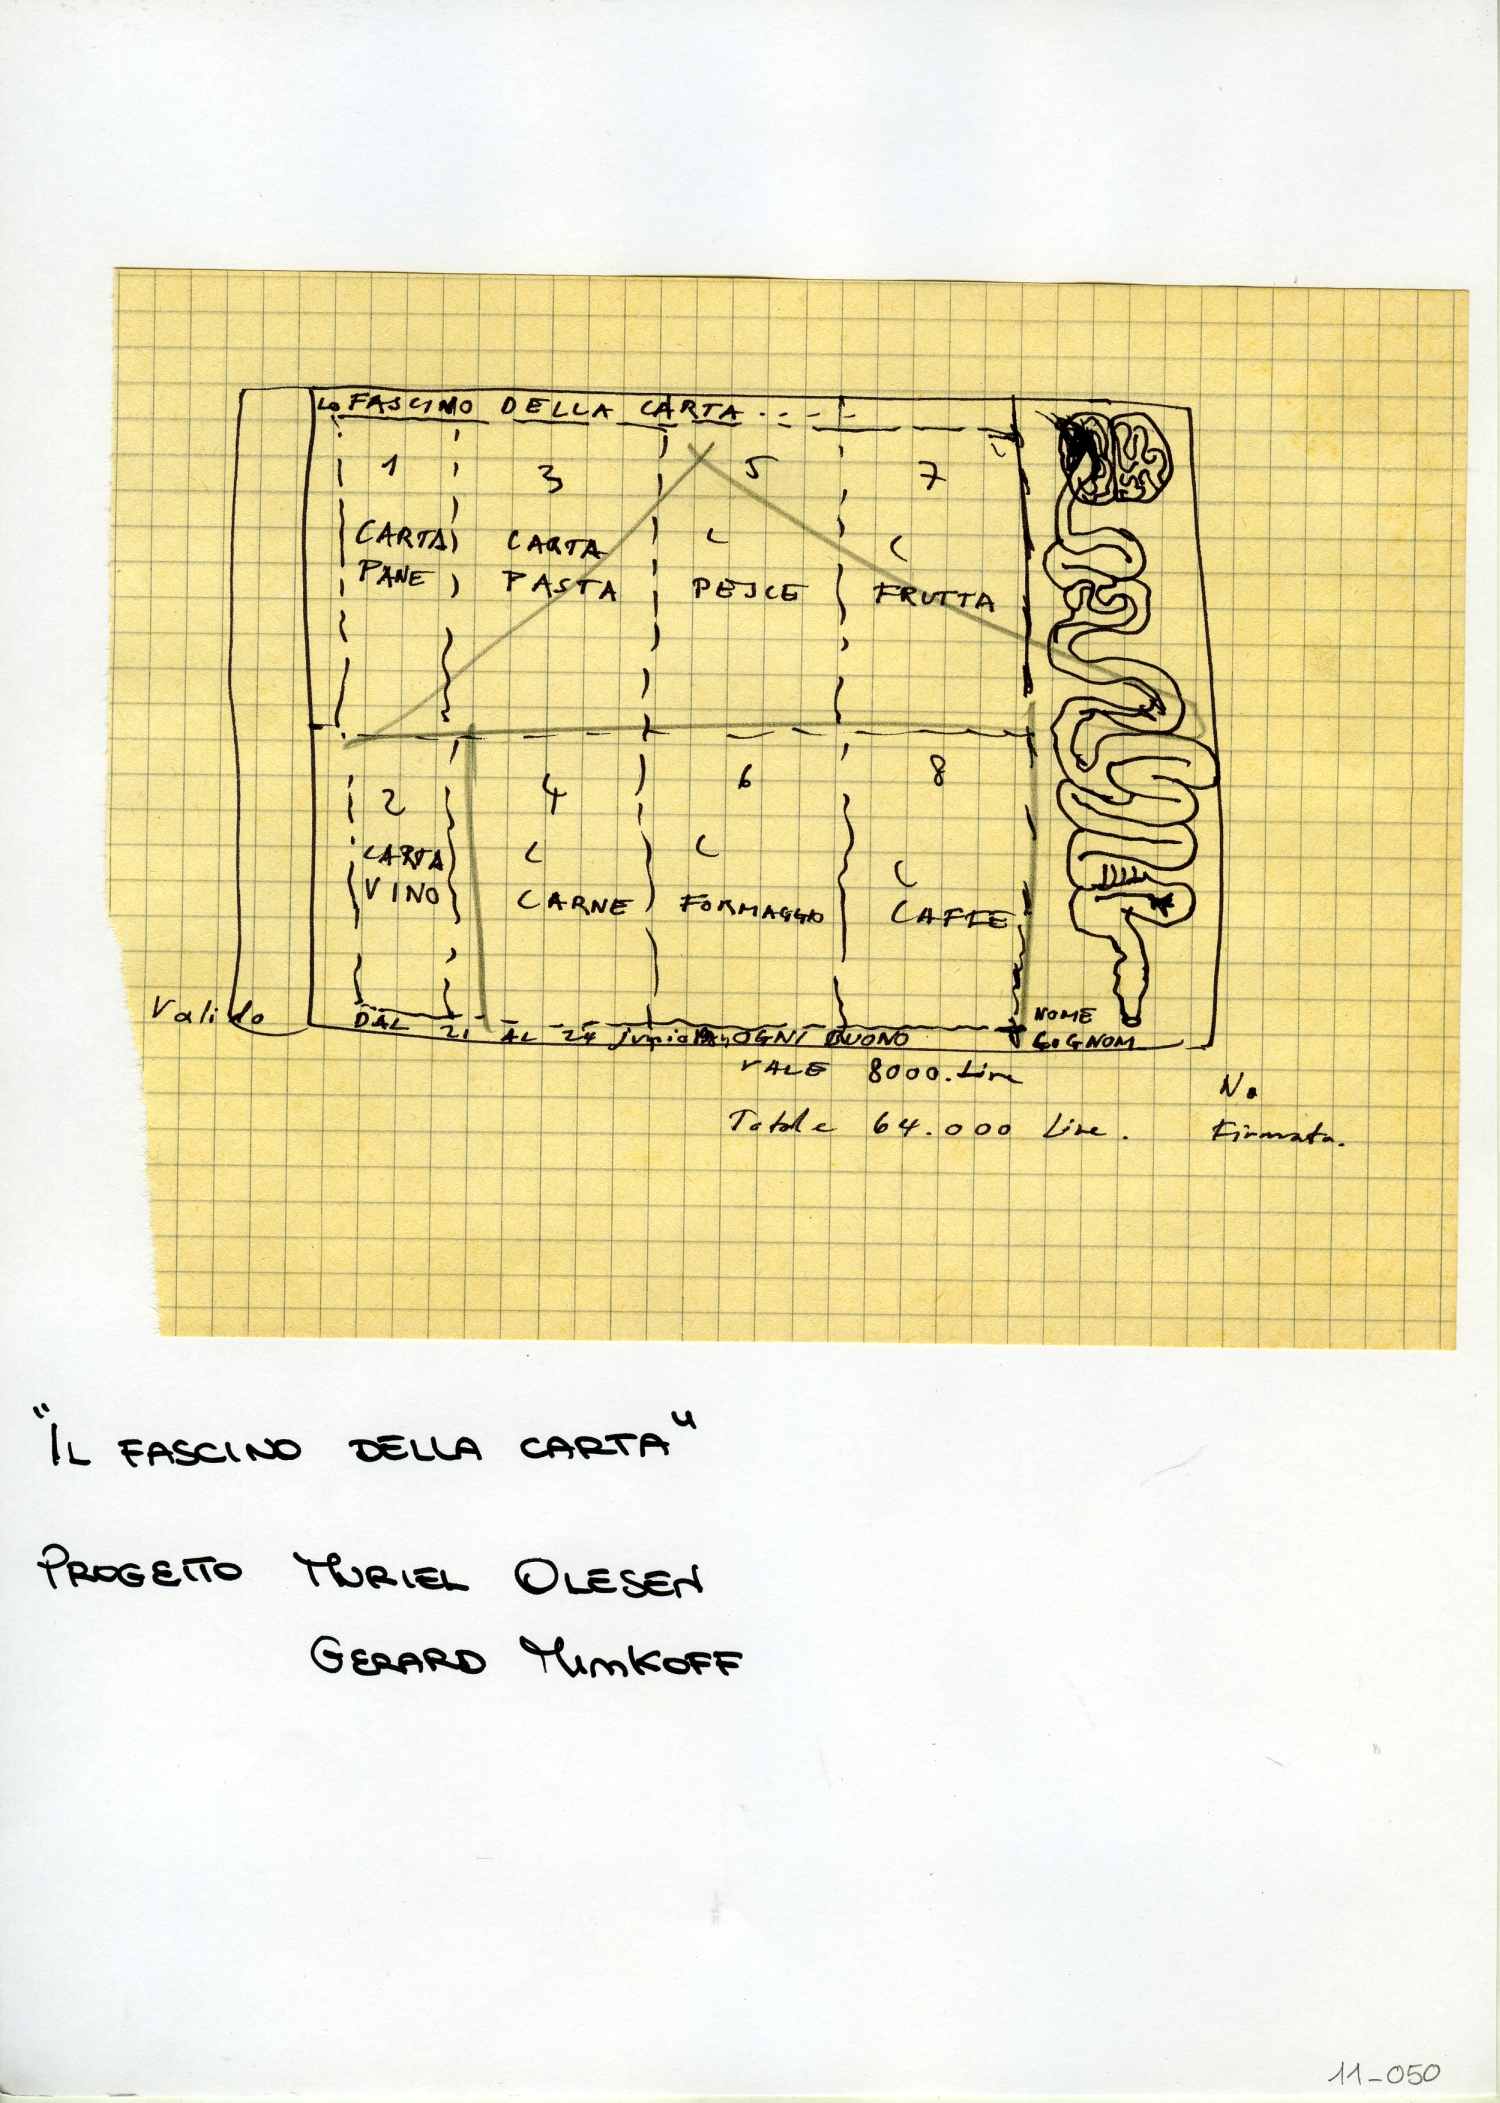 Lo FASCINO DELLA CARTA
1
3
5
7
CARTA PANE
CARTA PASTA
C PESCE
C FRUTTA
2
4
6
8
CARTA VINO
C CARNE
C FORMAGGIO
C CAFFE
Valido DAL 21 AL 24 OGNI BUONO
VALE 8000. Lire
Totale 64.000 Lire.
NOME
COGNOM
No
Firmata.
"IL FASCINO DELLA CARTA"
PROGETTO MURIEL OLESEN
GERARD MINKOFF
11-050